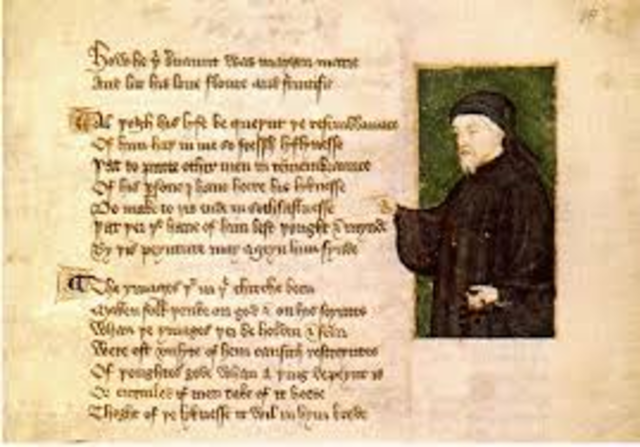 How he þt servaunt was mayden marie
And lat his love floure and fructifie
Al þogh his lyfe be queynt þe resemblaunce
Of him haþ in me so fressh lyflynesse
Þat to putte othir men in remembraunce
Of his persone I haue heere his lyknesse
Do make to þis ende in sothfastnesse
Þat þei þt haue of him lest þought & mynde
By þis peynture may ageyn him fynde
The ymages þt in þe chirche been
Maken folk þenke on god & on his seyntes
Whan þe ymages þei be holden & seen
Were oft unsyte of hem causith restreyntes
Of þoughtes gode whan a þing depeynt is
Or entailed if men take of it heede
Thoght of þe lyknesse it wil in hym brede